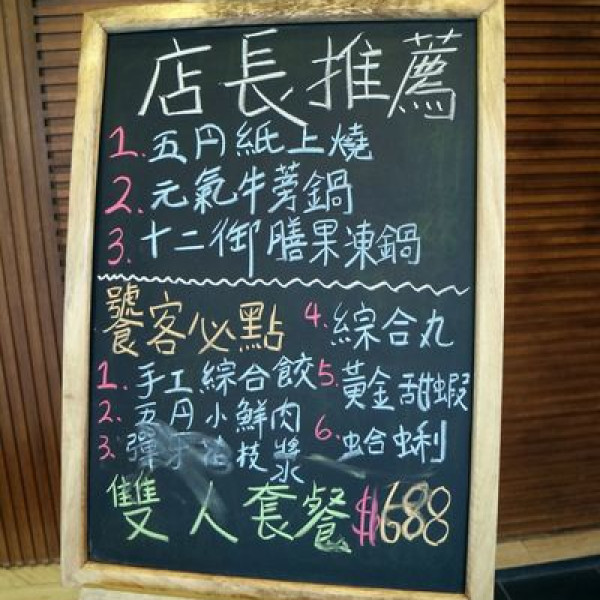 店長推薦
1. 五円紙上燒
2. 元氣牛蒡鍋
3. 十二御膳果凍鍋
饕客必點
1. 手工綜合餃
2. 五円小鮮肉
3. 彈牙 技漿
4. 綜合丸
5. 黃金甜蝦
6. 蛤蜊
雙人套餐$688